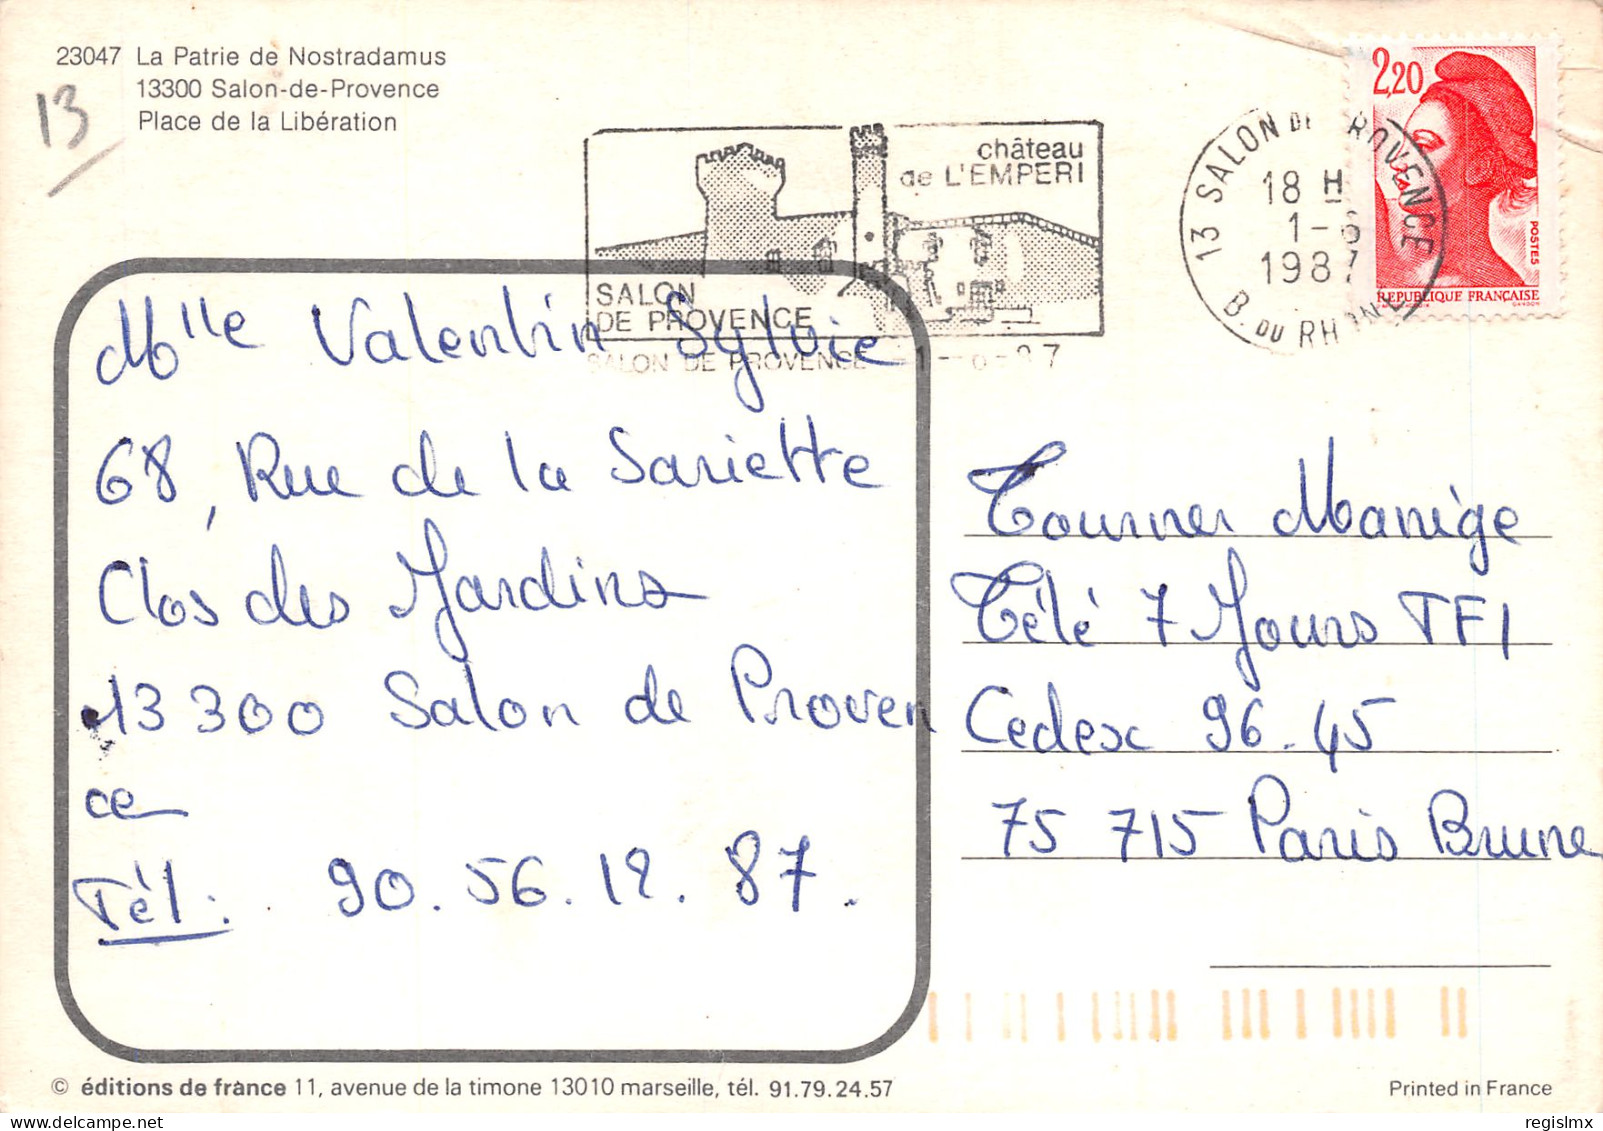 23047 La Patrie de Nostradamus
13300 Salon-de-Provence
Place de la Libération
13
château
de L'EMPERI
SALON
DE PROVENCE
SALON DE PROVENCE -1-6-87
13 SALON DE PROVENCE
18 H
1-6
1987
B. DU RHONE
2,20
POSTES
REPUBLIQUE FRANÇAISE
GANDON
Mlle Valentin Sylvie
68, Rue de la Sariette
Clos des Jardins
13300 Salon de Proven
ce
Tél: 90.56.12.87.
Tourner Manège
Télé 7 Jours TF1
Cedex 96.45
75 715 Paris Brune
© éditions de france 11, avenue de la timone 13010 marseille, tél. 91.79.24.57
Printed in France
regislmx